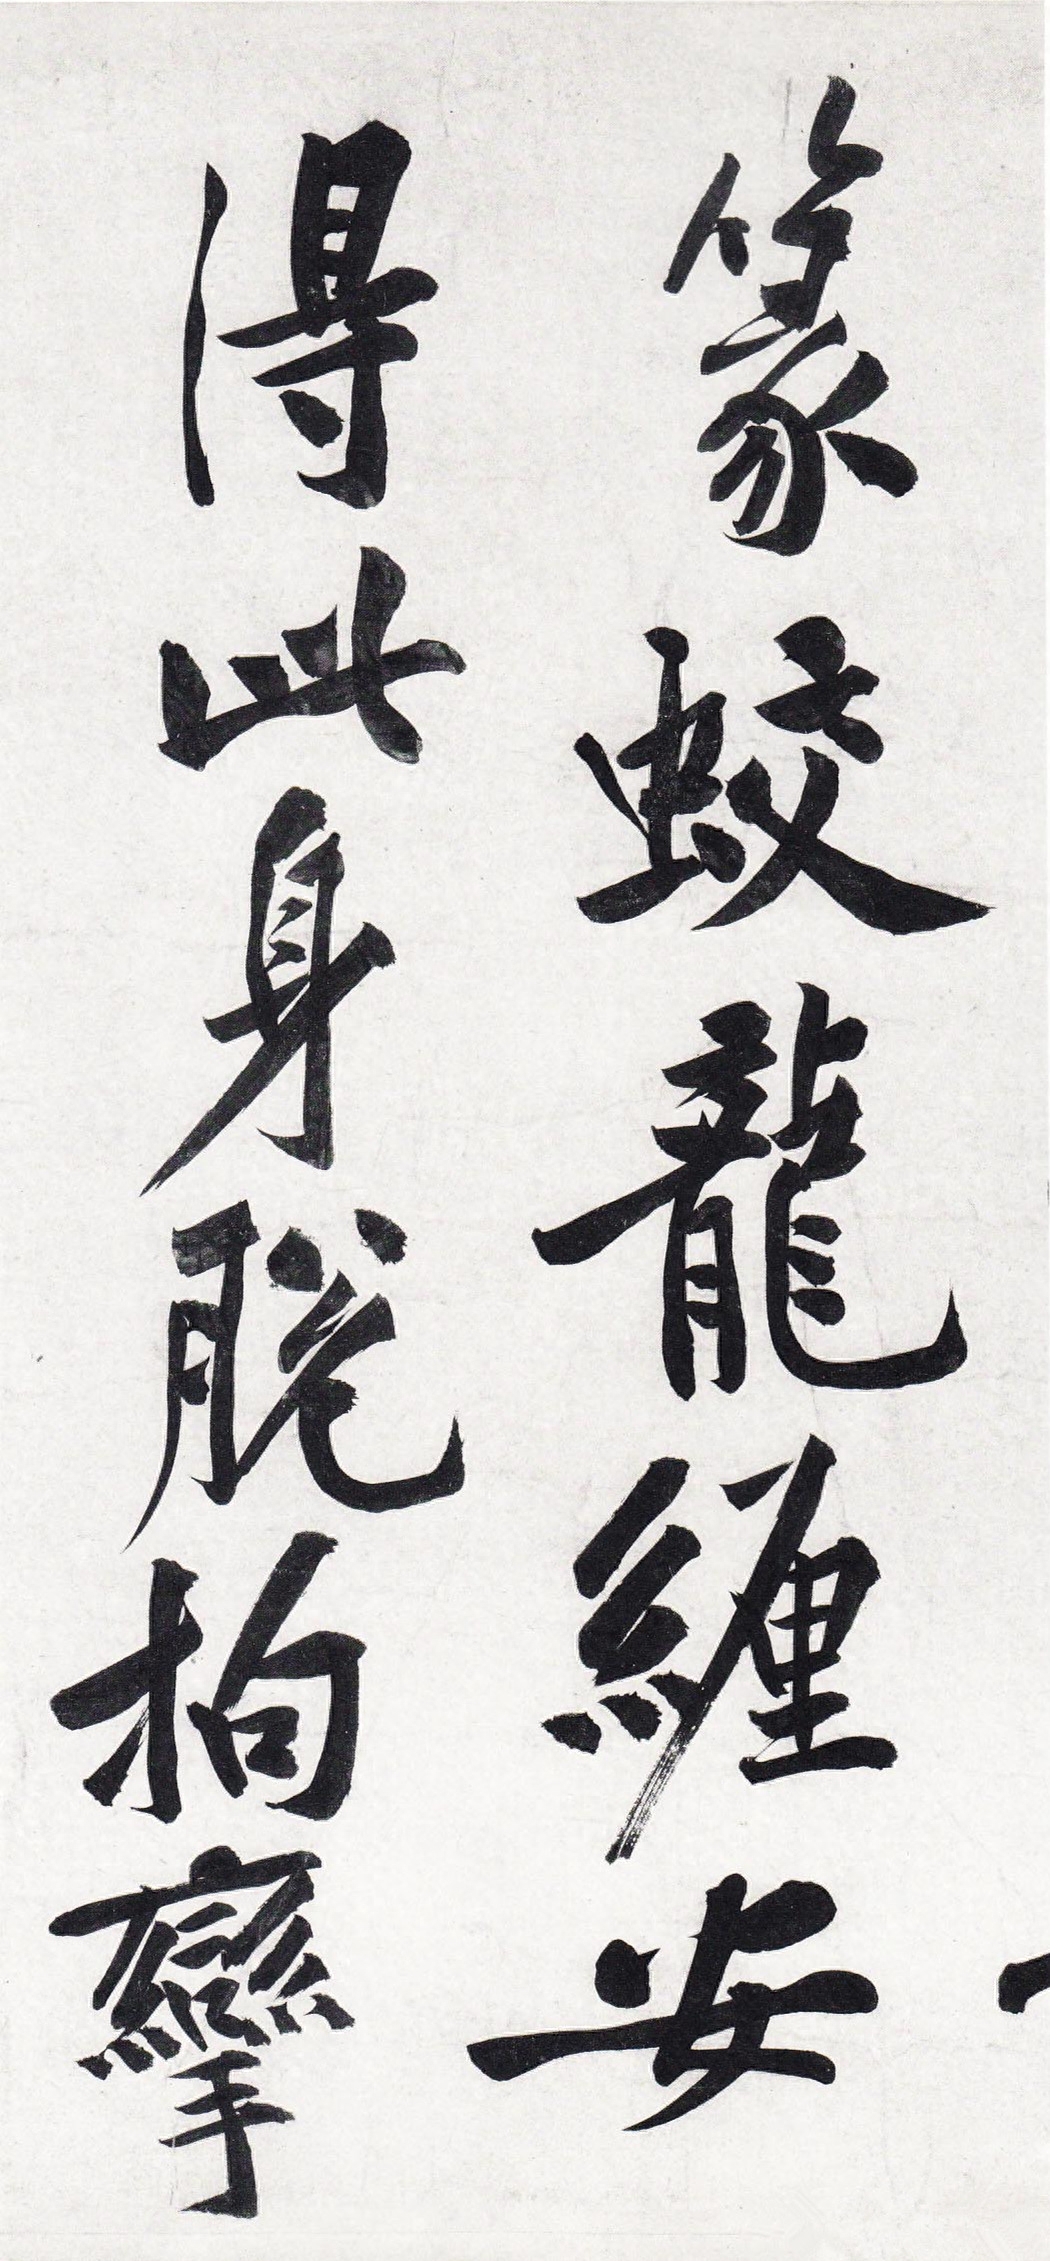 篆蛟龍纏安
得此身脫拘攣